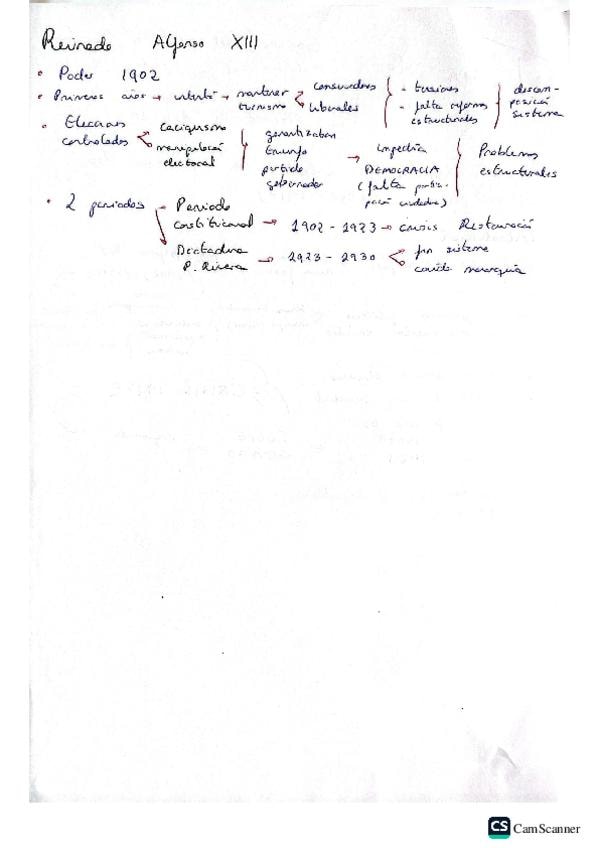 Reinado Alfonso XIII
• Poder 1902
• Primeros años → intentó → mantener turnismo
conservadores
liberales
- tensiones
- falta reformas estructurales
descom-
posición
sistema
• Elecciones
controladas
caciquismo
manipulación
electoral
garantizaban
triunfo
partido
gobernador
→ impedía
DEMOCRACIA
(falta partici-
pación ciudadana)
Problemas
estructurales
• 2 periodos
Periodo
constitucional → 1902 - 1923 → crisis Restauración
Dictadura
P. Rivera → 1923 - 1930
fin sistema
caída monarquía
CS CamScanner